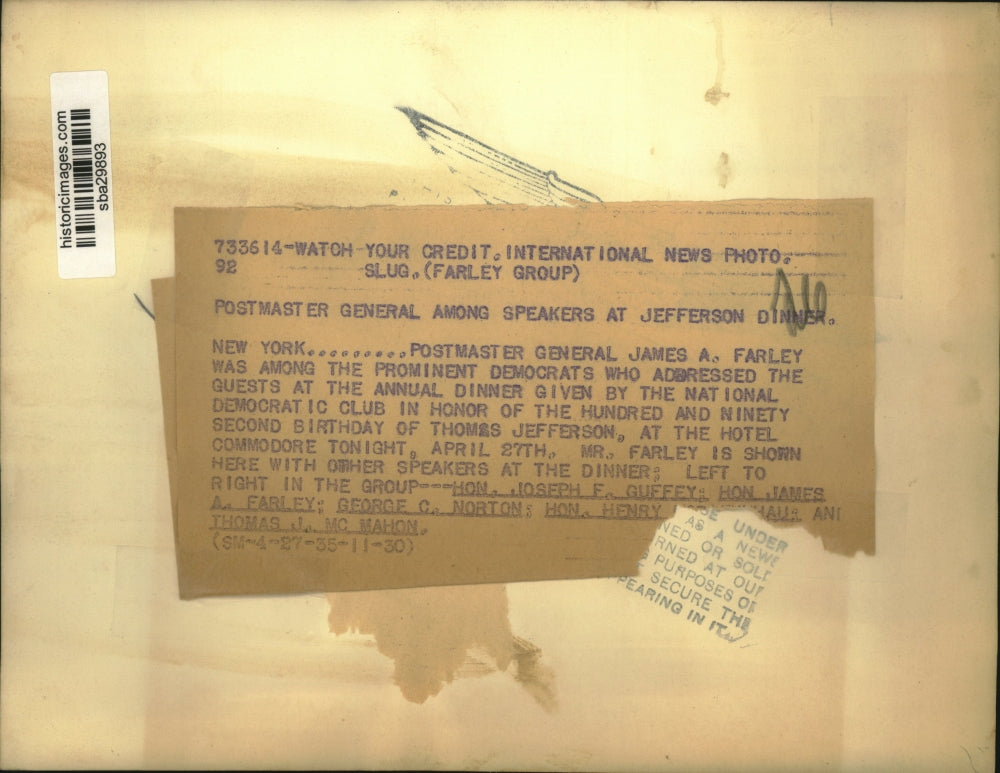 historicimages.com
sba29893
733614-WATCH YOUR CREDIT. INTERNATIONAL NEWS PHOTO.
92 SLUG. (FARLEY GROUP)
POSTMASTER GENERAL AMONG SPEAKERS AT JEFFERSON DINNER.
NEW YORK..........POSTMASTER GENERAL JAMES A. FARLEY
WAS AMONG THE PROMINENT DEMOCRATS WHO ADDRESSED THE
GUESTS AT THE ANNUAL DINNER GIVEN BY THE NATIONAL
DEMOCRATIC CLUB IN HONOR OF THE HUNDRED AND NINETY
SECOND BIRTHDAY OF THOMAS JEFFERSON, AT THE HOTEL
COMMODORE TONIGHT, APRIL 27TH. MR. FARLEY IS SHOWN
HERE WITH OTHER SPEAKERS AT THE DINNER; LEFT TO
RIGHT IN THE GROUP---HON. JOSEPH F. GUFFEY; HON JAMES
A. FARLEY; GEORGE C. NORTON; HON. HENRY HAU; AN
THOMAS J. MC MAHON.
(SM-4-27-35-11-30)
UNDER
AS A NEWS
NED OR SOLD
RNED AT OUR
PURPOSES OF
SECURE THE
PEARING IN IT